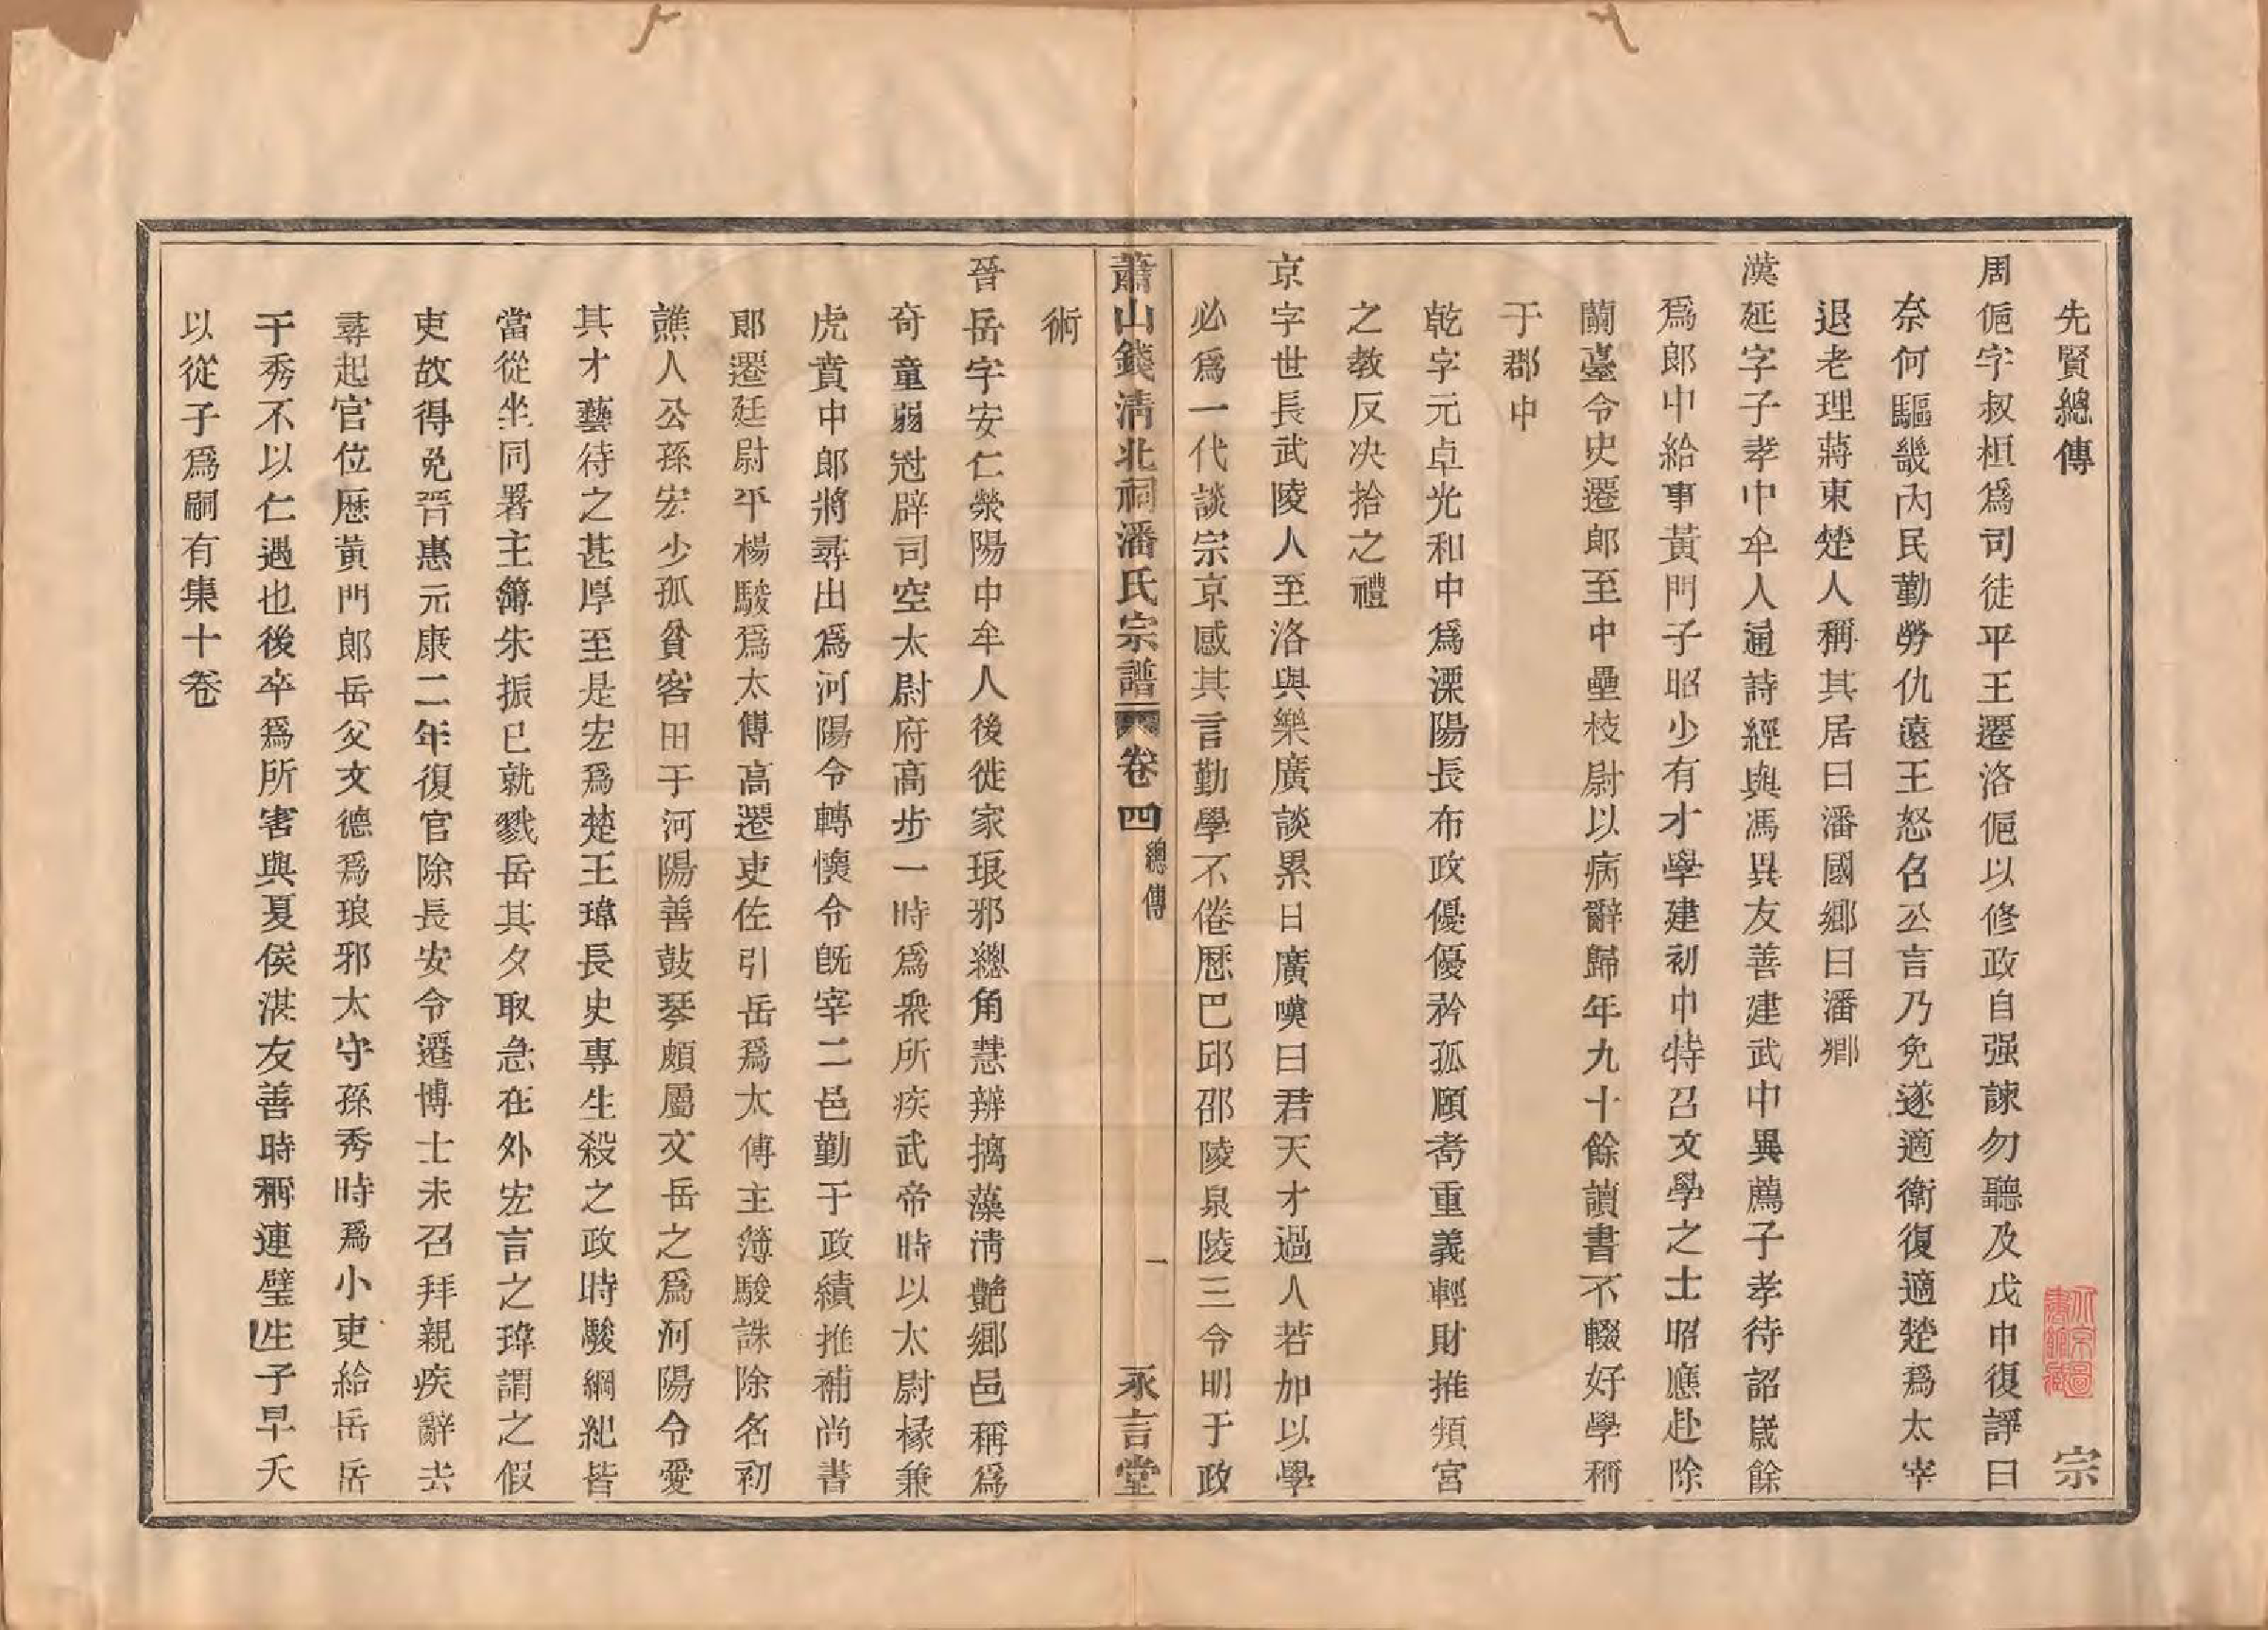 先賢總傳 宗
周㢮字叔桓爲司徒平王遷洛㢮以修政自强諫勿聽及戊申復諍曰
奈何驅畿內民勤勞仇遠王怒召公言乃免遂適衛復適楚爲太宰
退老理蔣東楚人稱其居曰潘國鄉曰潘鄉
漢延字子孝中牟人通詩經與馮異友善建武中異薦子孝待詔嵗餘
爲郎中給事黃門子昭少有才學建初中特召文學之士昭應赴除
蘭臺令史遷郎至中壘校尉以病辭歸年九十餘讀書不輟好學稱
于郡中
乾字元卓光和中爲溧陽長布政優優矜孤頤耇重義輕財推頖宮
之教反决拾之禮
京字世長武陵人至洛與樂廣談累日廣嘆曰君天才過人若加以學
必爲一代談宗京感其言勤學不倦歷巴邱邵陵泉陵三令明于政
蕭山錢清北祠潘氏宗譜 卷四 總傳 一 承言堂
術
晉岳字安仁滎陽中牟人後徙家琅邪總角慧辨摛藻清艷鄉邑稱爲
奇童弱冠辟司空太尉府高步一時爲衆所疾武帝時以太尉椽兼
虎賁中郎將尋出爲河陽令轉懷令旣宰二邑勤于政績推補尚書
郎遷廷尉平楊駿爲太傅高遷吏佐引岳爲太傅主簿駿誅除名初
譙人公孫宏少孤貧客田于河陽善鼓琴頗屬文岳之爲河陽令愛
其才藝待之甚厚至是宏爲楚王瑋長史專生殺之政時駿綱紀皆
當從坐同署主簿朱振已就戮岳其夕取急在外宏言之瑋謂之假
吏故得免晉惠元康二年復官除長安令遷博士未召拜親疾辭去
尋起官位歷黃門郎岳父文德爲琅邪太守孫秀時爲小吏給岳岳
于秀不以仁遇也後卒爲所害與夏侯湛友善時稱連璧生子早夭
以從子爲嗣有集十卷